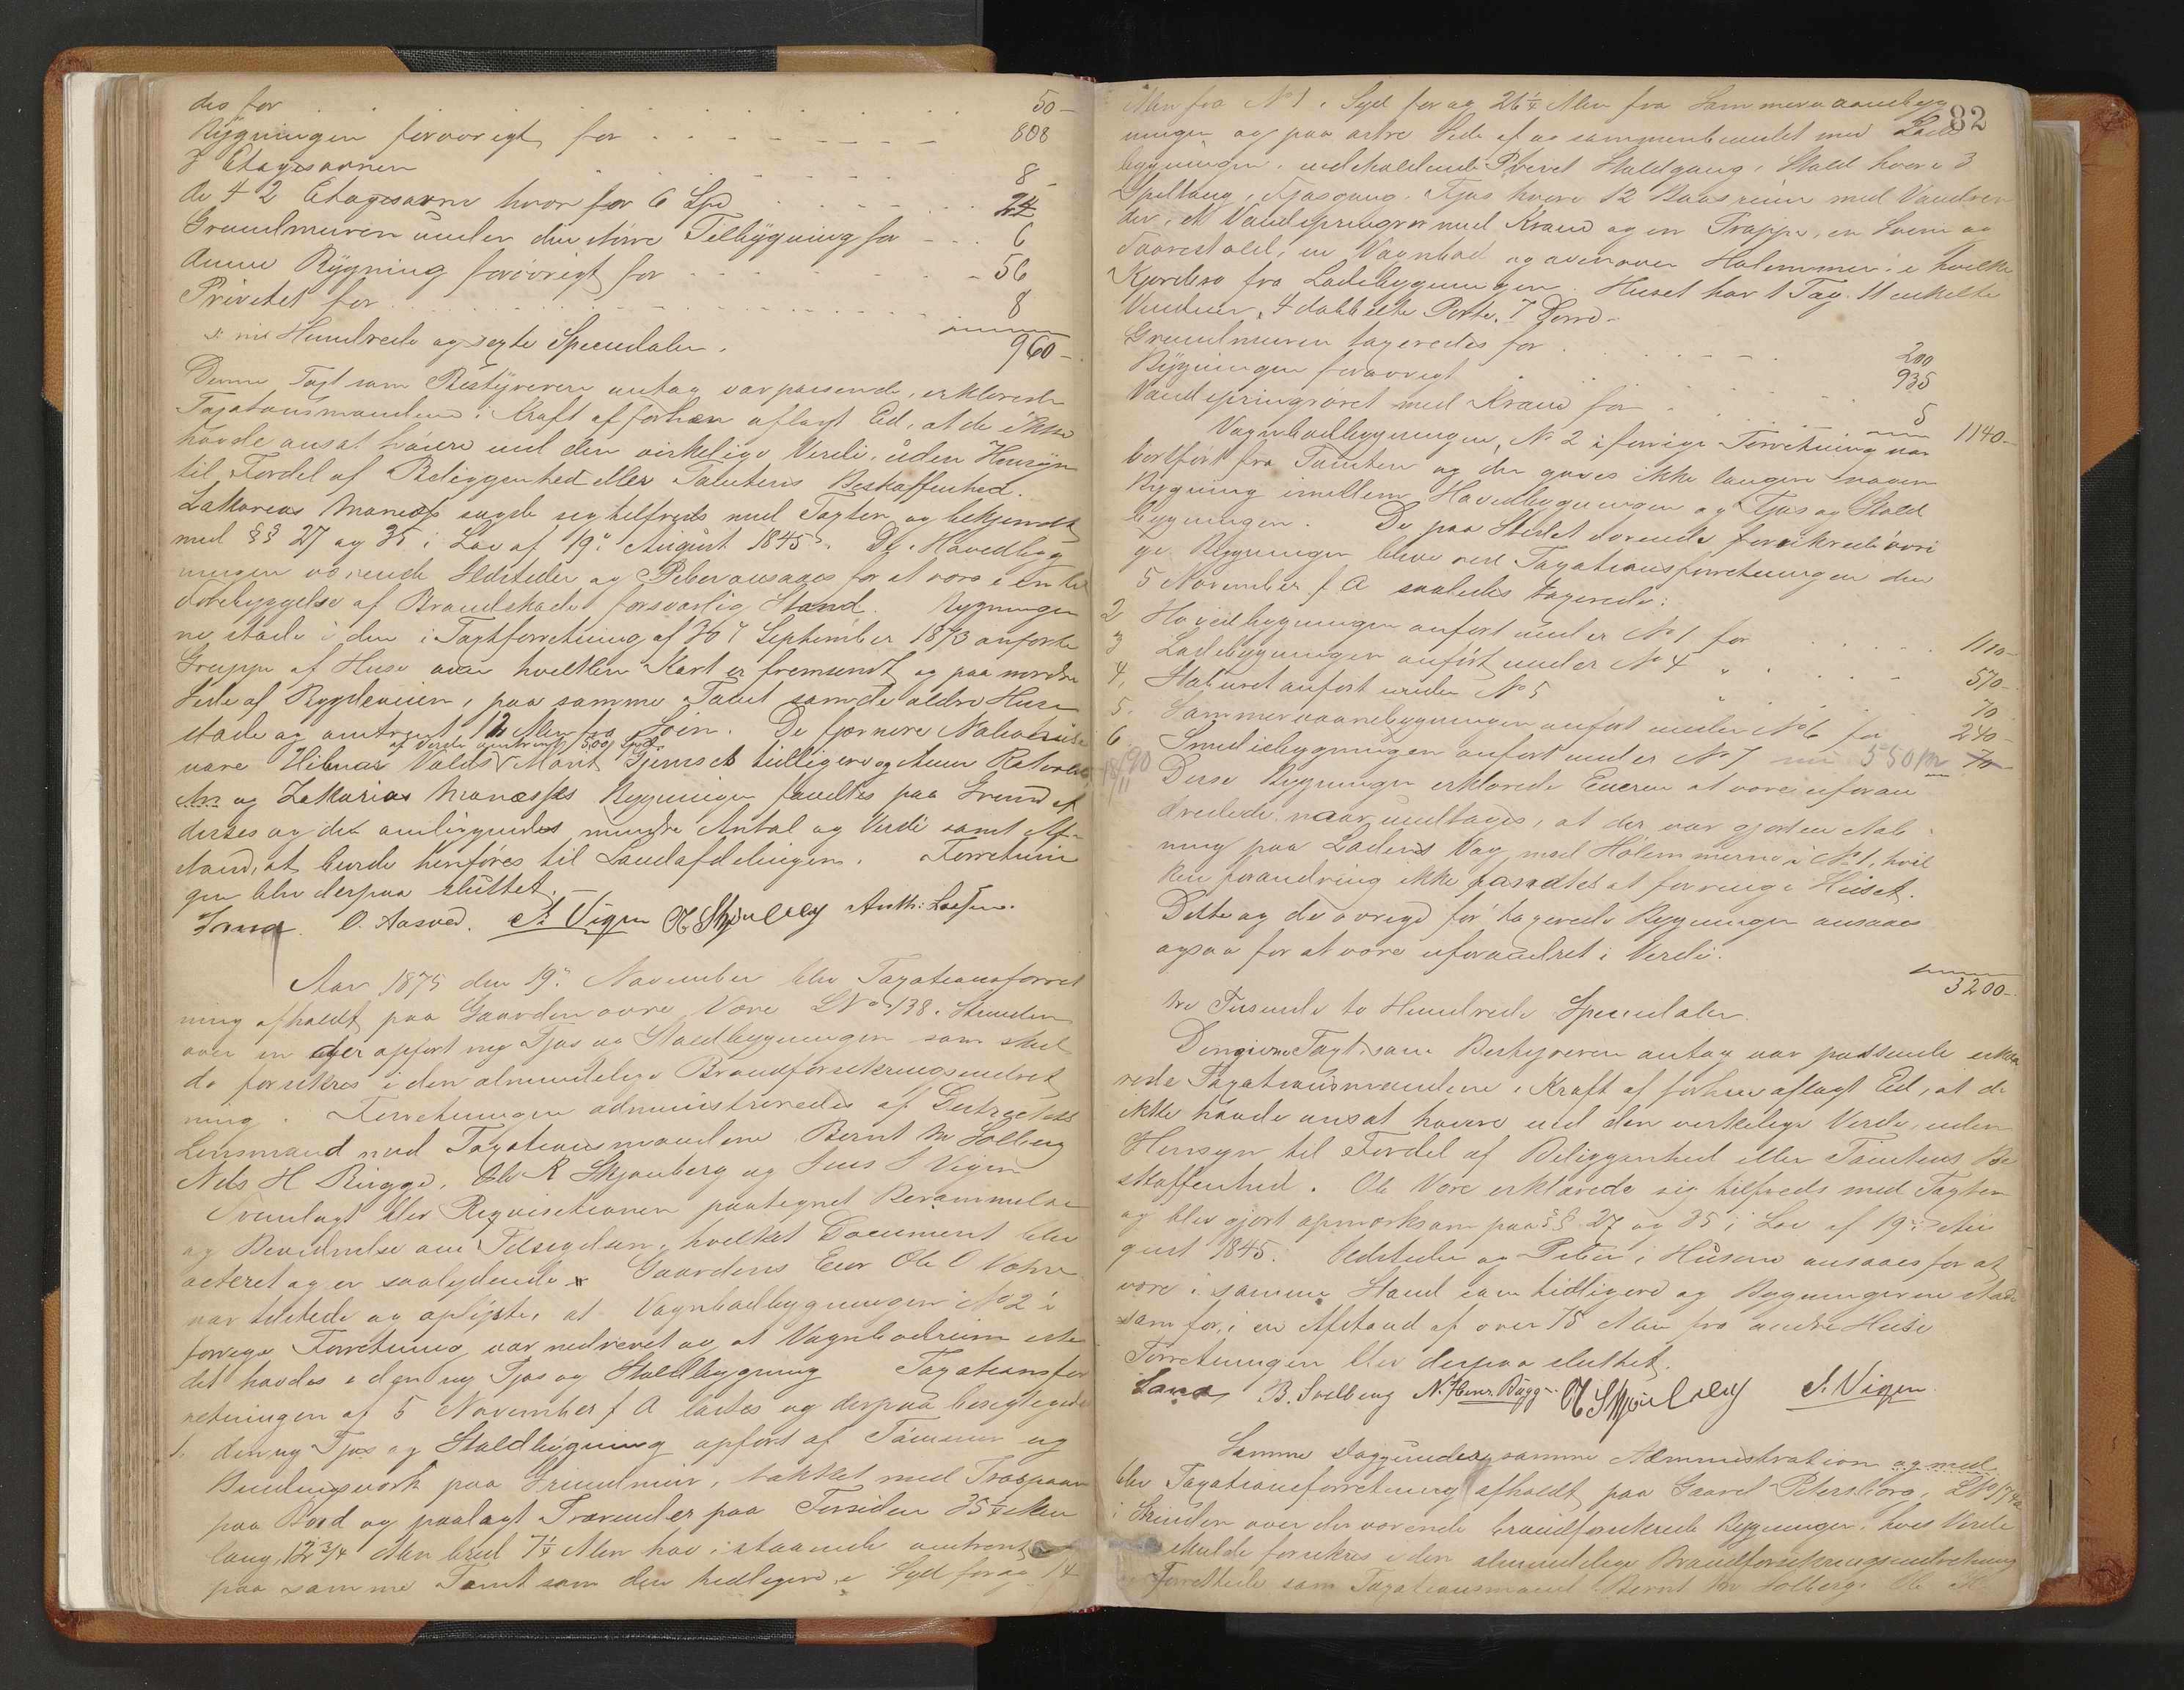 des for . . . 50 -
Bygningen forøvrigt for . . . 808
3 Etagesovnen . . . 8 -
de 4 2 Etagesovne hvor for 6 Spd . . . 24
Grundmuren under den større Tilbygning for . . . 6
denne Bygning forøvrigt for . . . 56
Privetet for . . . 8
er ni Hundrede og sexti Speciedaler. 960 -
Denne Taxt som Bestyreren antog var passende, erklærede
Taxationsmændene i Kraft af forhen aflagt Ed, at de ikke
havde ansat høiere end den virkelige Værdi, uden Hensyn
til Fordel af Beliggenhed eller Tomtens Beskaffenhed.
Zakarias Manesses sagde sig tilfreds med Taxten og bekjendt
med §§ 27 og 35 i Lov af 19de August 1845. De i Hovedbyg
ningen værende Ildsteder og Piber ansaaes for at være i en til
Forebyggelse af Brandskade forsvarlig Stand. Bygninger
ne stode i den i Taxtforretning af 30te September 1873 anførte
Gruppe af Huse over hvilken Kart er fremsendt og paa nordre
Side af Bygdeveien, paa samme Tomt som de ældre Huse
stode og omtrent 12 Alen fra Søen. De fjernere Nabohuse
af Værdi omtrent 1500 Spd.
vare Hilmar Volds Mart. Gjemsøs tidligere og Anne Rotvold
As og Zakarias Manæsses Bygninger fandtes paa Grund af
disses og det omliggendes mindre Antal og Værdi samt Af-
stand, at burde henføres til Landafdelingen. Forretnin
gen blev derpaa sluttet. -
O. Aasved. J. Vigen O R Skjønberg Anth: Loësen.
Aar 1875 den 19de November blev Taxationsforret
ning afholdt paa Gaarden øvre Være L No 138 i Strinden
over en der opført ny Fjøs og Staldbygningen som skul
de forsikres i den almindelige Brandforsikringsindret
ning. Forretningen administreredes af Distriktets
Lensmand med Taxationsmændene Bernt M Solberg
Nils H Bügge, Ole R Skjønberg og Jens J Vigen
Fremlagt blev Requisitionen paategnet Berammelse
og Bevidnelse om Tilsigelsen, hvilket Document blev
acteret og er saalydende # Gaardens Eier Ole O Være
var tilstede og oplyste, at Vognbodbygningen No 2 i
forrige Forretning var nedrevet og at Vognbodrum iste
det havdes i den ny Fjøs og Staldbygning Taxationsfor
retningen af 5 November f A læstes og derpaa besigtigede
1. den ny Fjøs og Staldbygning opført af Tømmer og
Bindingsværk paa Grundmur, tækket med Træspaan
paa Bord og paalagt Trærender paa Forsiden 35 1/4 Alen
lang, 12 3/4 Alen bred 7 1/4 Alen høi i staaende omtrent
paa samme Tomt som den tidligere i Syd for og 14
82
Alen fra No 1 i Syd for og 26 1/4 Alen fra Sommervaanebyg
ningen og paa østre Side af og sammenbundet med Lade
bygningen, indeholdende Privet Staldgang, Stald hvori 3
Spiltoug, Fjøsgang, Fjøs hvori 12 Baasrum med Vandren
der, et Vandspringrør med Kran og en Trappe, en Svine og
Faarestald, en Vognbod og ovenover Hølemmer i hvilke
Kjørebro fra Ladebygningen. Huset har 1 Fag. 11 enkelte
Vinduer, 4 dobbelte Porte, 7 Døre -
Grundmuren taxeredes for . . . 200
Bygningen forøvrigt . . . 935
Vandspringrøret med Kran for . . . 5 1140 -
Vognbodbygningen, No 2 i forrige Forretning var
bortført fra Tomten og der gaves ikke længere nogen
Bygning imellem Hovedbygningen og Fjøs og Stald
bygningen. De paa Stedet værende forsikrede øvri
ge Bygninger bleve ved Taxationsforretningen den
5 November f A saaledes taxerede:
2 Hovedbygningen anført under No 1 for . . . 1110 -
3 Ladebygningen anført under No 4 " . . . 570 -
4. Staburet anført under No 5 " . . . 70
5. Sommervaanebygningen anført under No 6 for 240 -
6 Smediebygningen anført under No 7 550 Kr 70
18/11 90
Disse Bygninger erklærede Eieren at være uforan
drede, naar undtages, at der var gjort en Aab
ning paa Ladens Væg mod Hølemmerne i No 1, hvil
ken forandring ikke fandtes at forringe Huset.
Dette og de øvrige før taxerede Bygninger ansaaes
ogsaa for at være uforandret i Værdi.
3200 -
tre Tusinde to Hundrede Speciedaler.
Den givne Taxt, som Bestyreren antog var passende erklæ
rede Taxationsmændene i Kraft af forhen aflagt Ed, at de
ikke havde ansat høiere end den virkelige Værdi, uden
Hensyn til Fordel af Beliggenhed eller Tomtens Be
skaffenhed. Ole Være erklærede sig tilfreds med Taxten
og blev gjort opmærksom paa §§ 27 og 35 i Lov af 19de Au
gust 1845. Ildsteder og Piber i Husene ansaaes for at
være i samme Stand som tidligere og Bygningerne stode
som før, i en Afstand af over 75 Alen fra andre Huse
Forretningen blev derpaa sluttet.
B. Sollberg N. Henr. Bügge. O R Skjønberg J. Vigen
Samme Dag under samme Administration og med
blev Taxationsforretning afholdt paa Gaard Petersborg, L No 174a
i Strinden over der værende brandforsikrede Bygninger, hvis Værdi
skulde forsikres i den almindelige Brandforsikringsindretning
Forrettede som Taxationsmænd Bernt M Solberg, Ole R